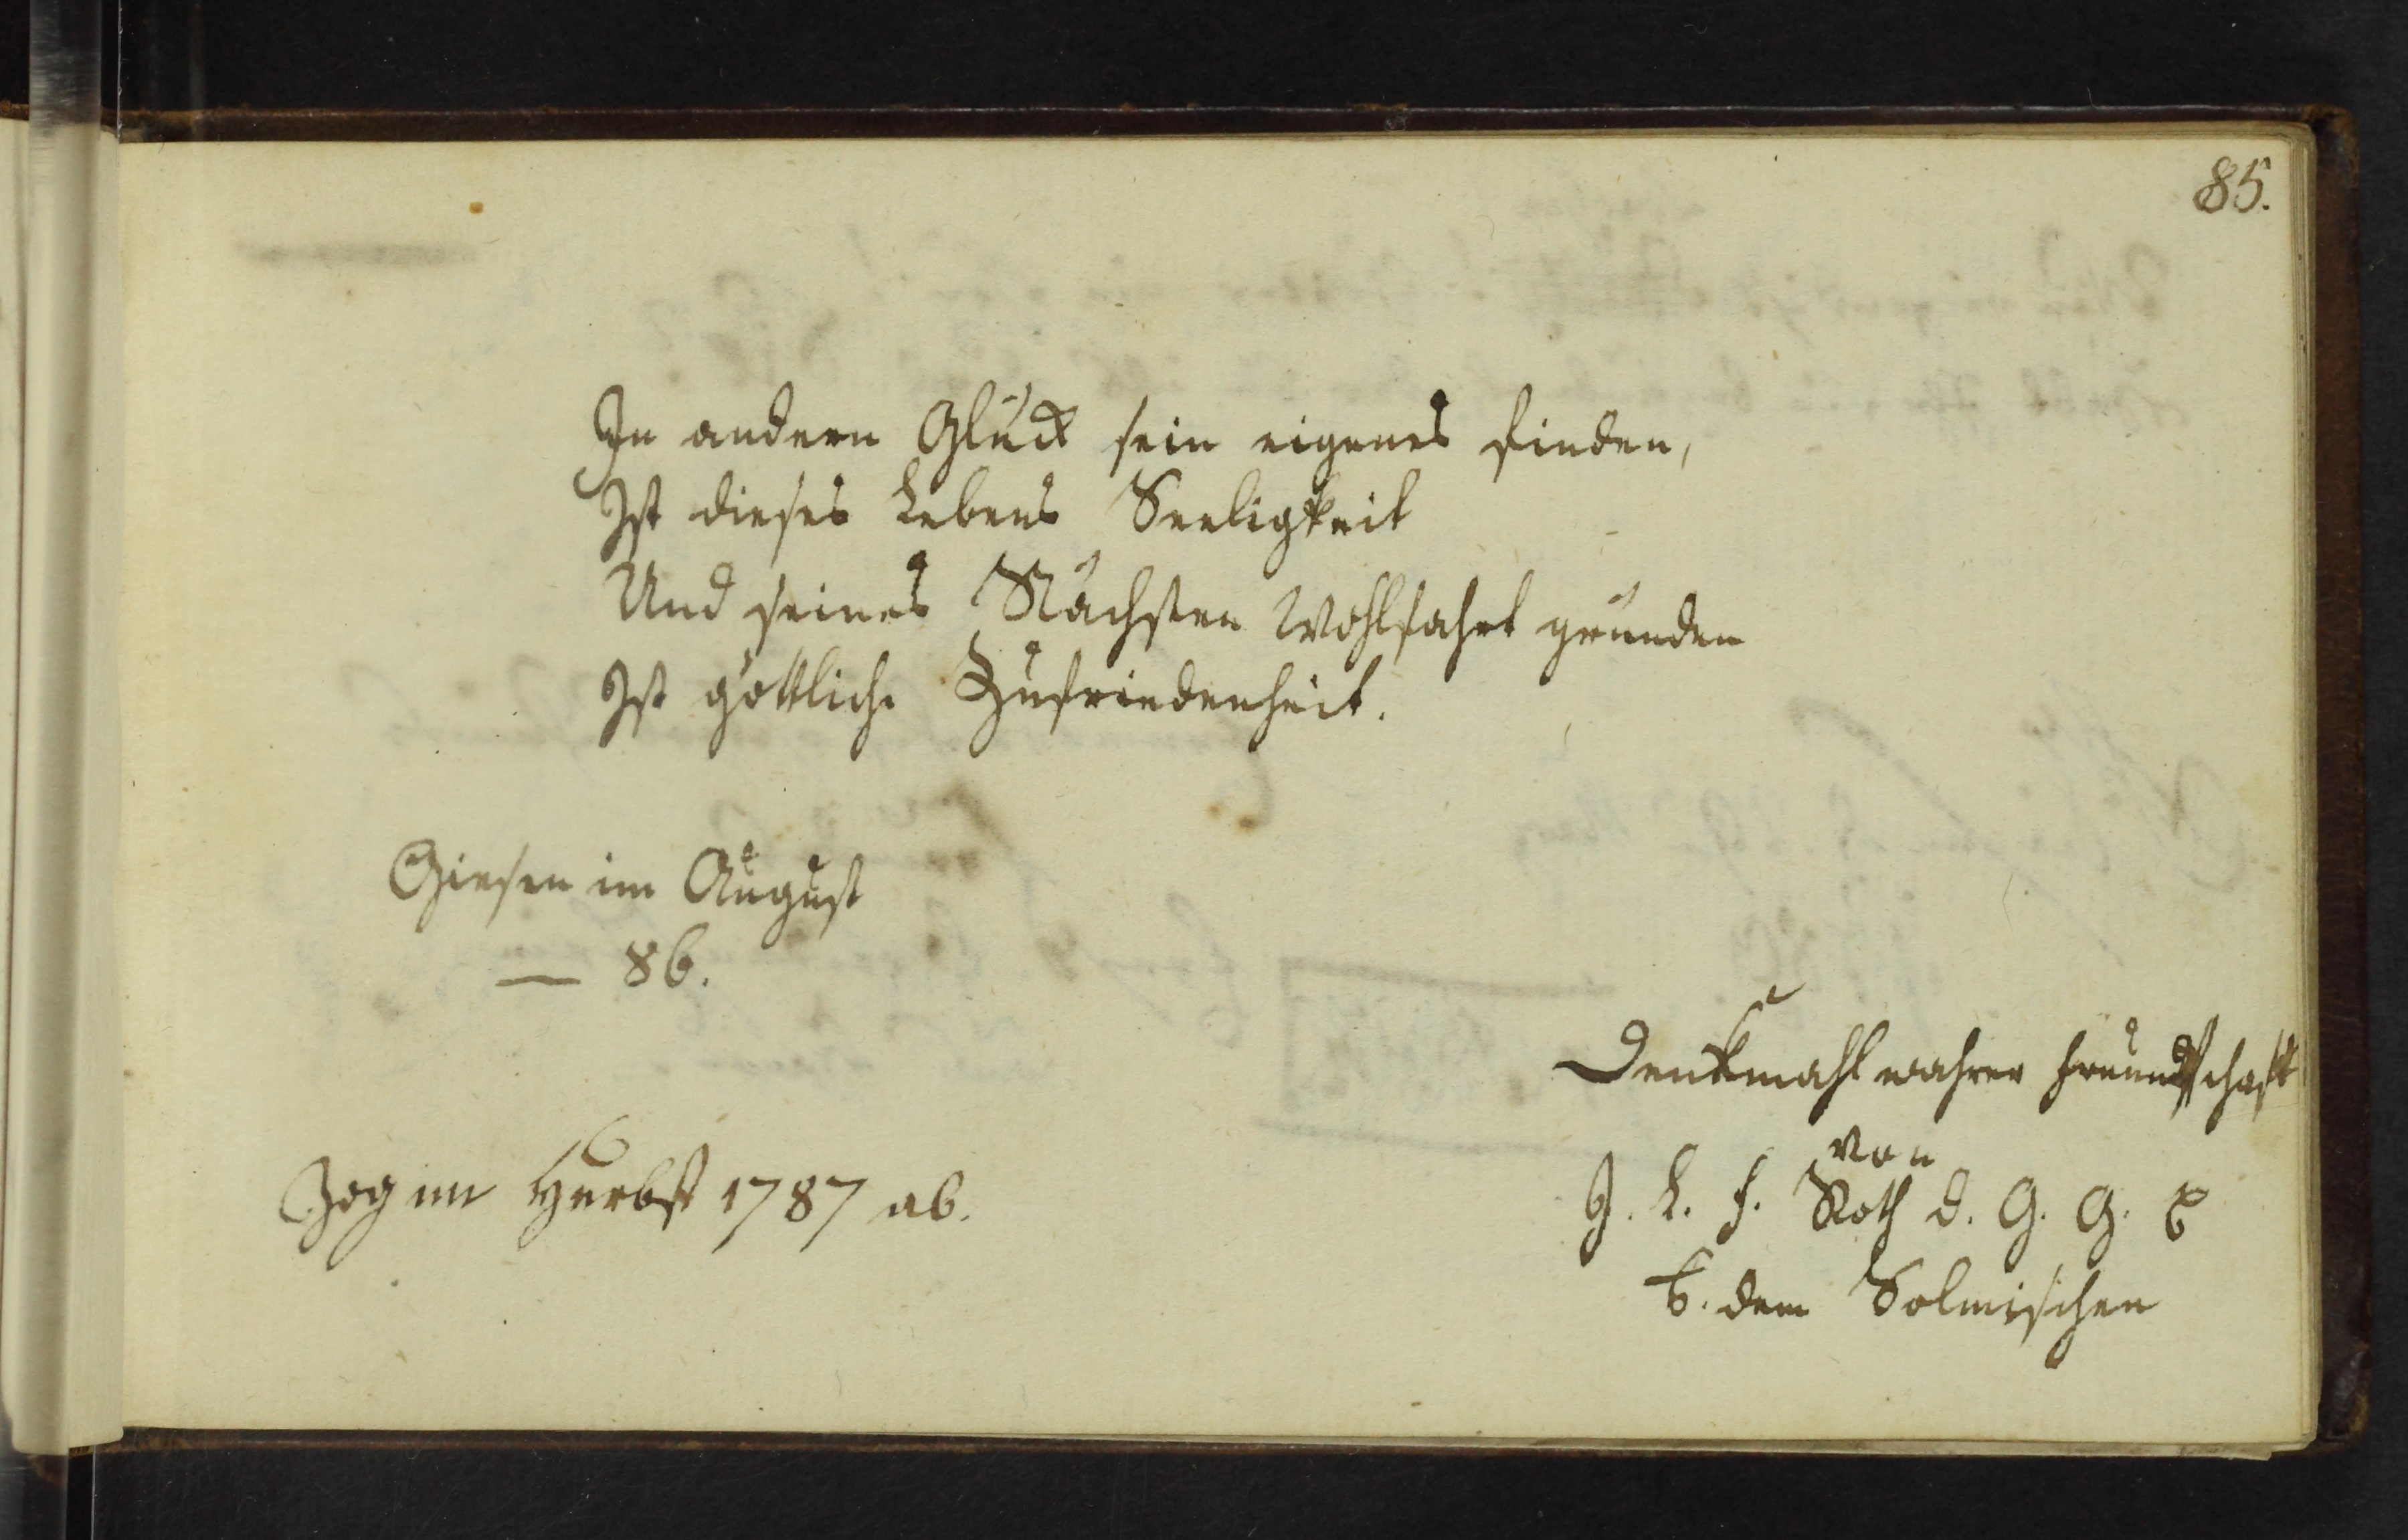 85.
In andern Glück sein eigenes finden,
Ist dieses Lebens Seeligkeit
Und seines Nächsten Wohlfahrt gründen
Ist göttliche Zufriedenheit.
Giesen im August
— 86.
Denkmahl wahrer Freundschaft
von
J. L. F. Roth d. G. G. B
a. dem Solmischen
Zog im Herbst 1787 ab.